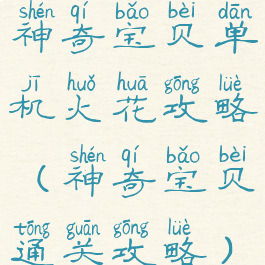 shén qí bǎo bèi dān
神奇宝贝单
jī huǒ huā gōng lüè
机火花攻略
shén qí bǎo bèi
（神奇宝贝
tōng guān gōng lüè
通关攻略）